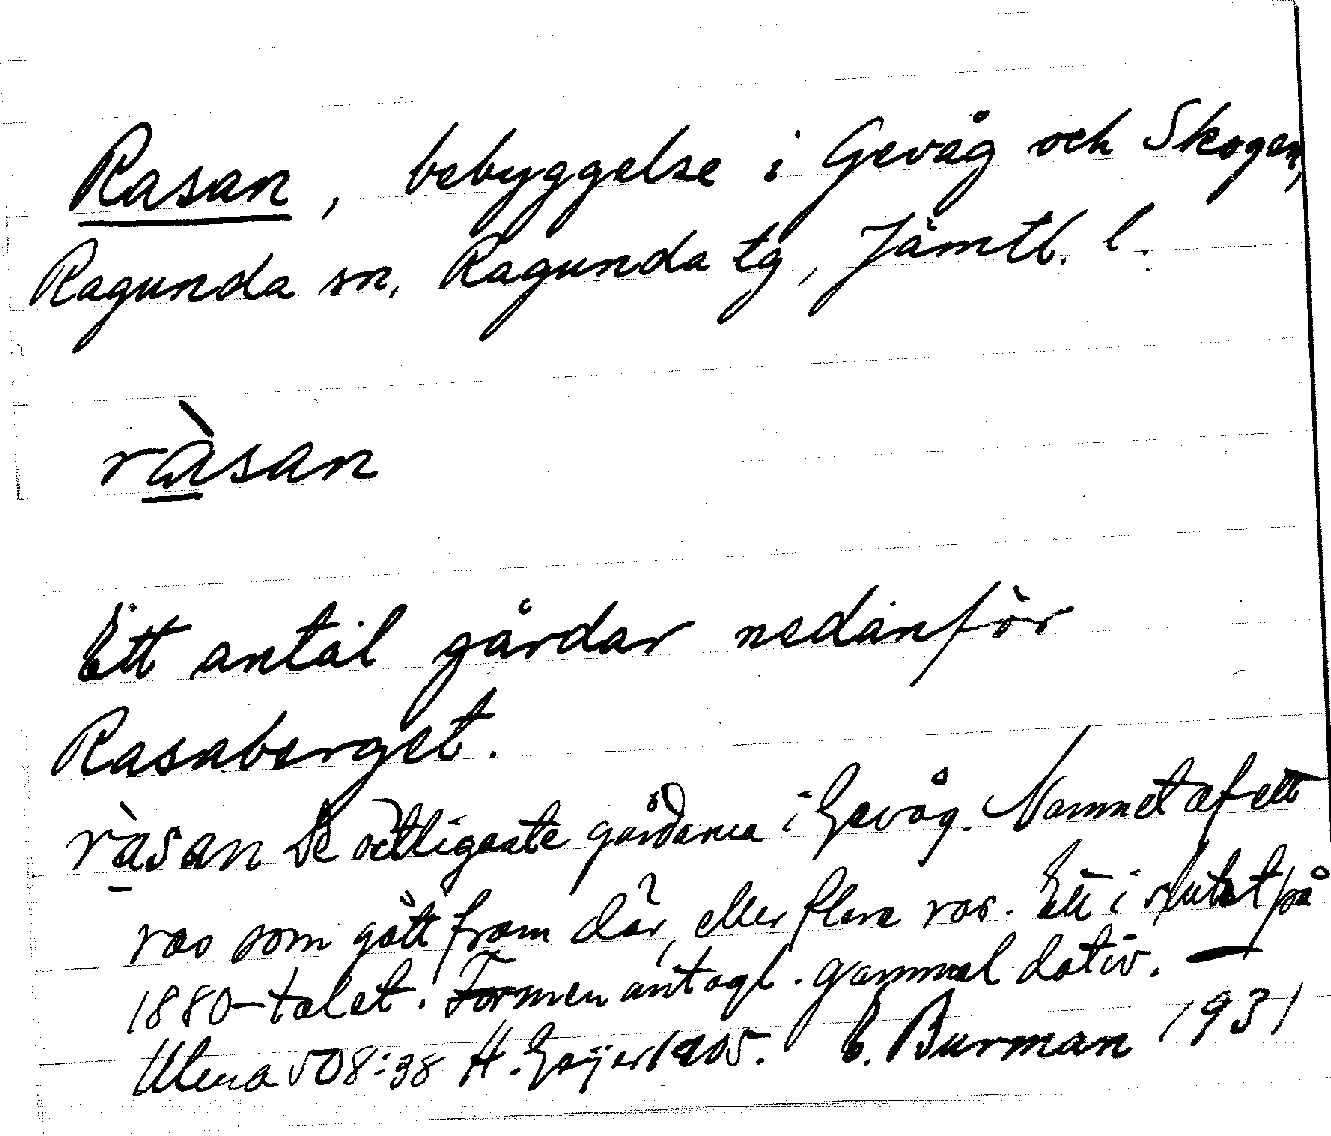 Rasan, bebyggelse i Gevåg och Skogen,
Ragunda sn, Ragunda tg, Jämtl. l.
ràsan
Ett antal gårdar nedanför
Rasaberget.
ràsan De östligaste gårdarna i Gevåg. Namnet af ett
ras som gått fram där, eller flera ras. Ett i slutet på
1880-talet. Formen antagl. gammal dativ. —
Ulma 508:38 H. Geijer 1905. E. Burman 1931